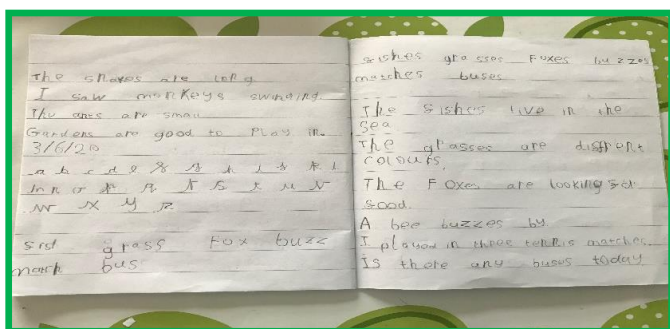 The snakes are long.
I saw monkeys swinging.
The ants are small
Gardens are good to Play in.
3/6/20
a b c d e f g h i j k l
m n o p q r s t u v
w x y z
sish grass Fox buzz
match bus
sishes grasses Foxes buzzes
matches buses
The sishes live in the
sea
The glasses are disfrent
colours
The Foxes are looking sor
sood.
A bee buzzes by
I played in three tennis matches.
Is there any buses today